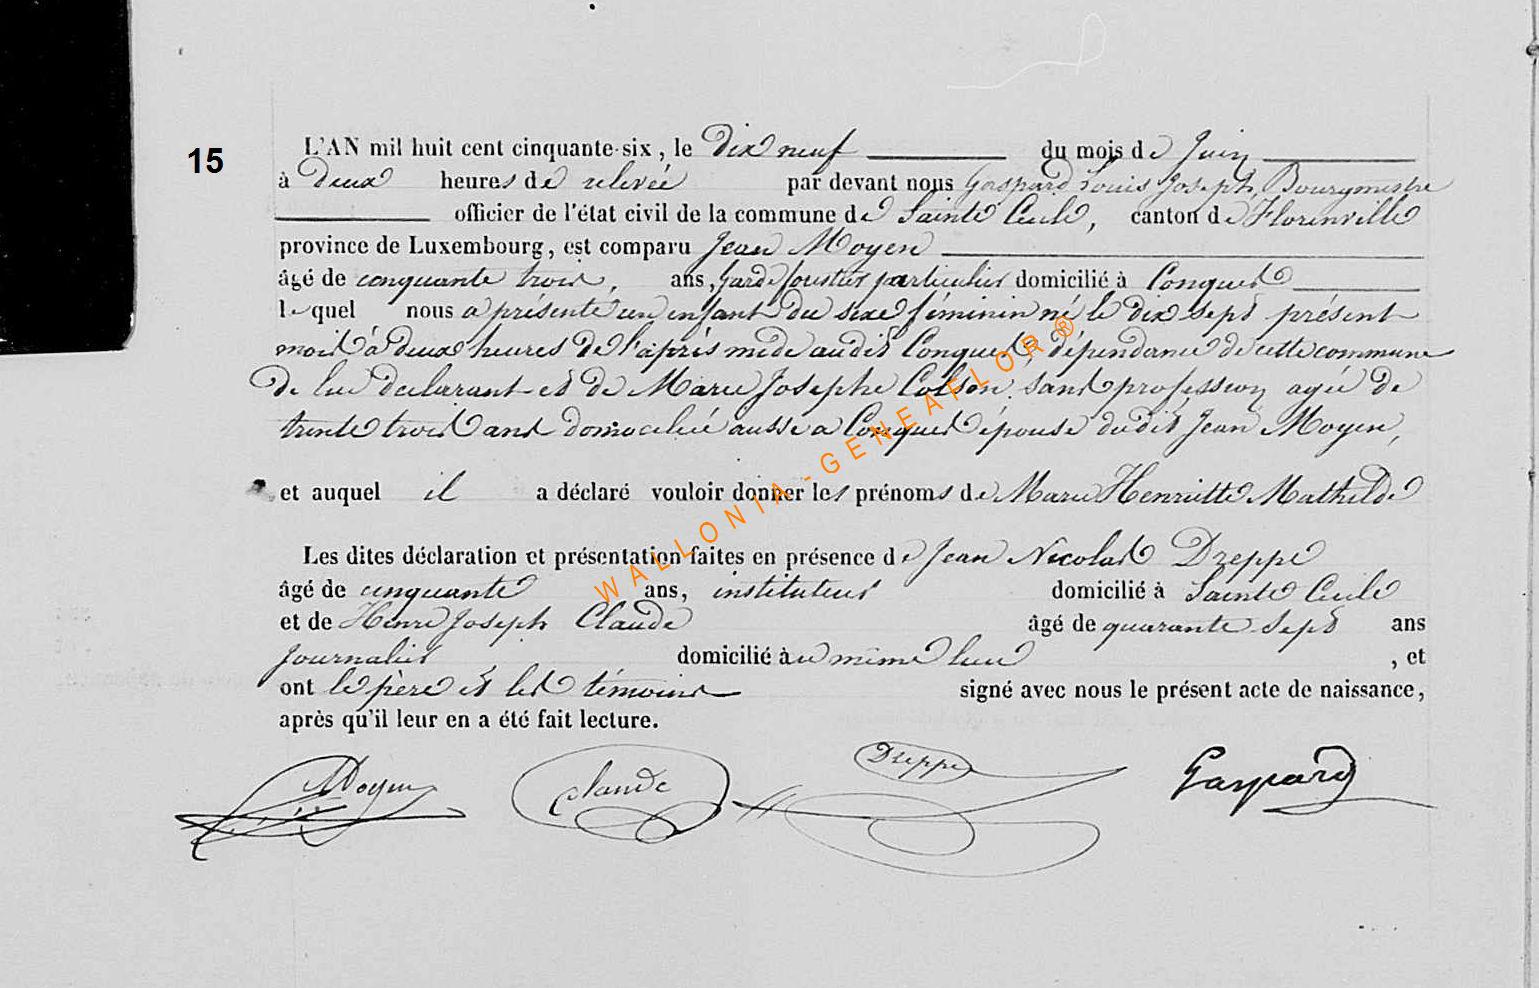 15
L'AN mil huit cent cinquante-six, le dix neuf du mois de Juin
à deux heures de relevée par devant nous Gaspard Louis Joseph, Bourgmestre
officier de l'état civil de la commune de Sainte Cecile, canton de Florenville
province de Luxembourg, est comparu Jean Moyen
âgé de cinquante trois, ans, Garde forestier particulier domicilié à Conques
lequel nous a présenté un enfant du sexe féminin né le dix sept présent
mois à deux heures de l'après midi audit Conques, dépendance de cette commune
de lui déclarant et de Marie Josephe Colson, sans profession agée de
trente trois ans domiciliée aussi a Conques épouse dudit Jean Moyen,
et auquel il a déclaré vouloir donner les prénoms de Marie Henriette Mathilde
Les dites déclaration et présentation faites en présence de Jean Nicolas Dreppe
âgé de cinquante ans, instituteur domicilié à Sainte Cecile
et de Henri Joseph Claude âgé de quarante sept ans
journalier domicilié au même lieu, et
ont le père et les témoins signé avec nous le présent acte de naissance,
après qu'il leur en a été fait lecture.
Moyen Claude Dreppe Gaspard
WALLONIA-GENEAFLOR®